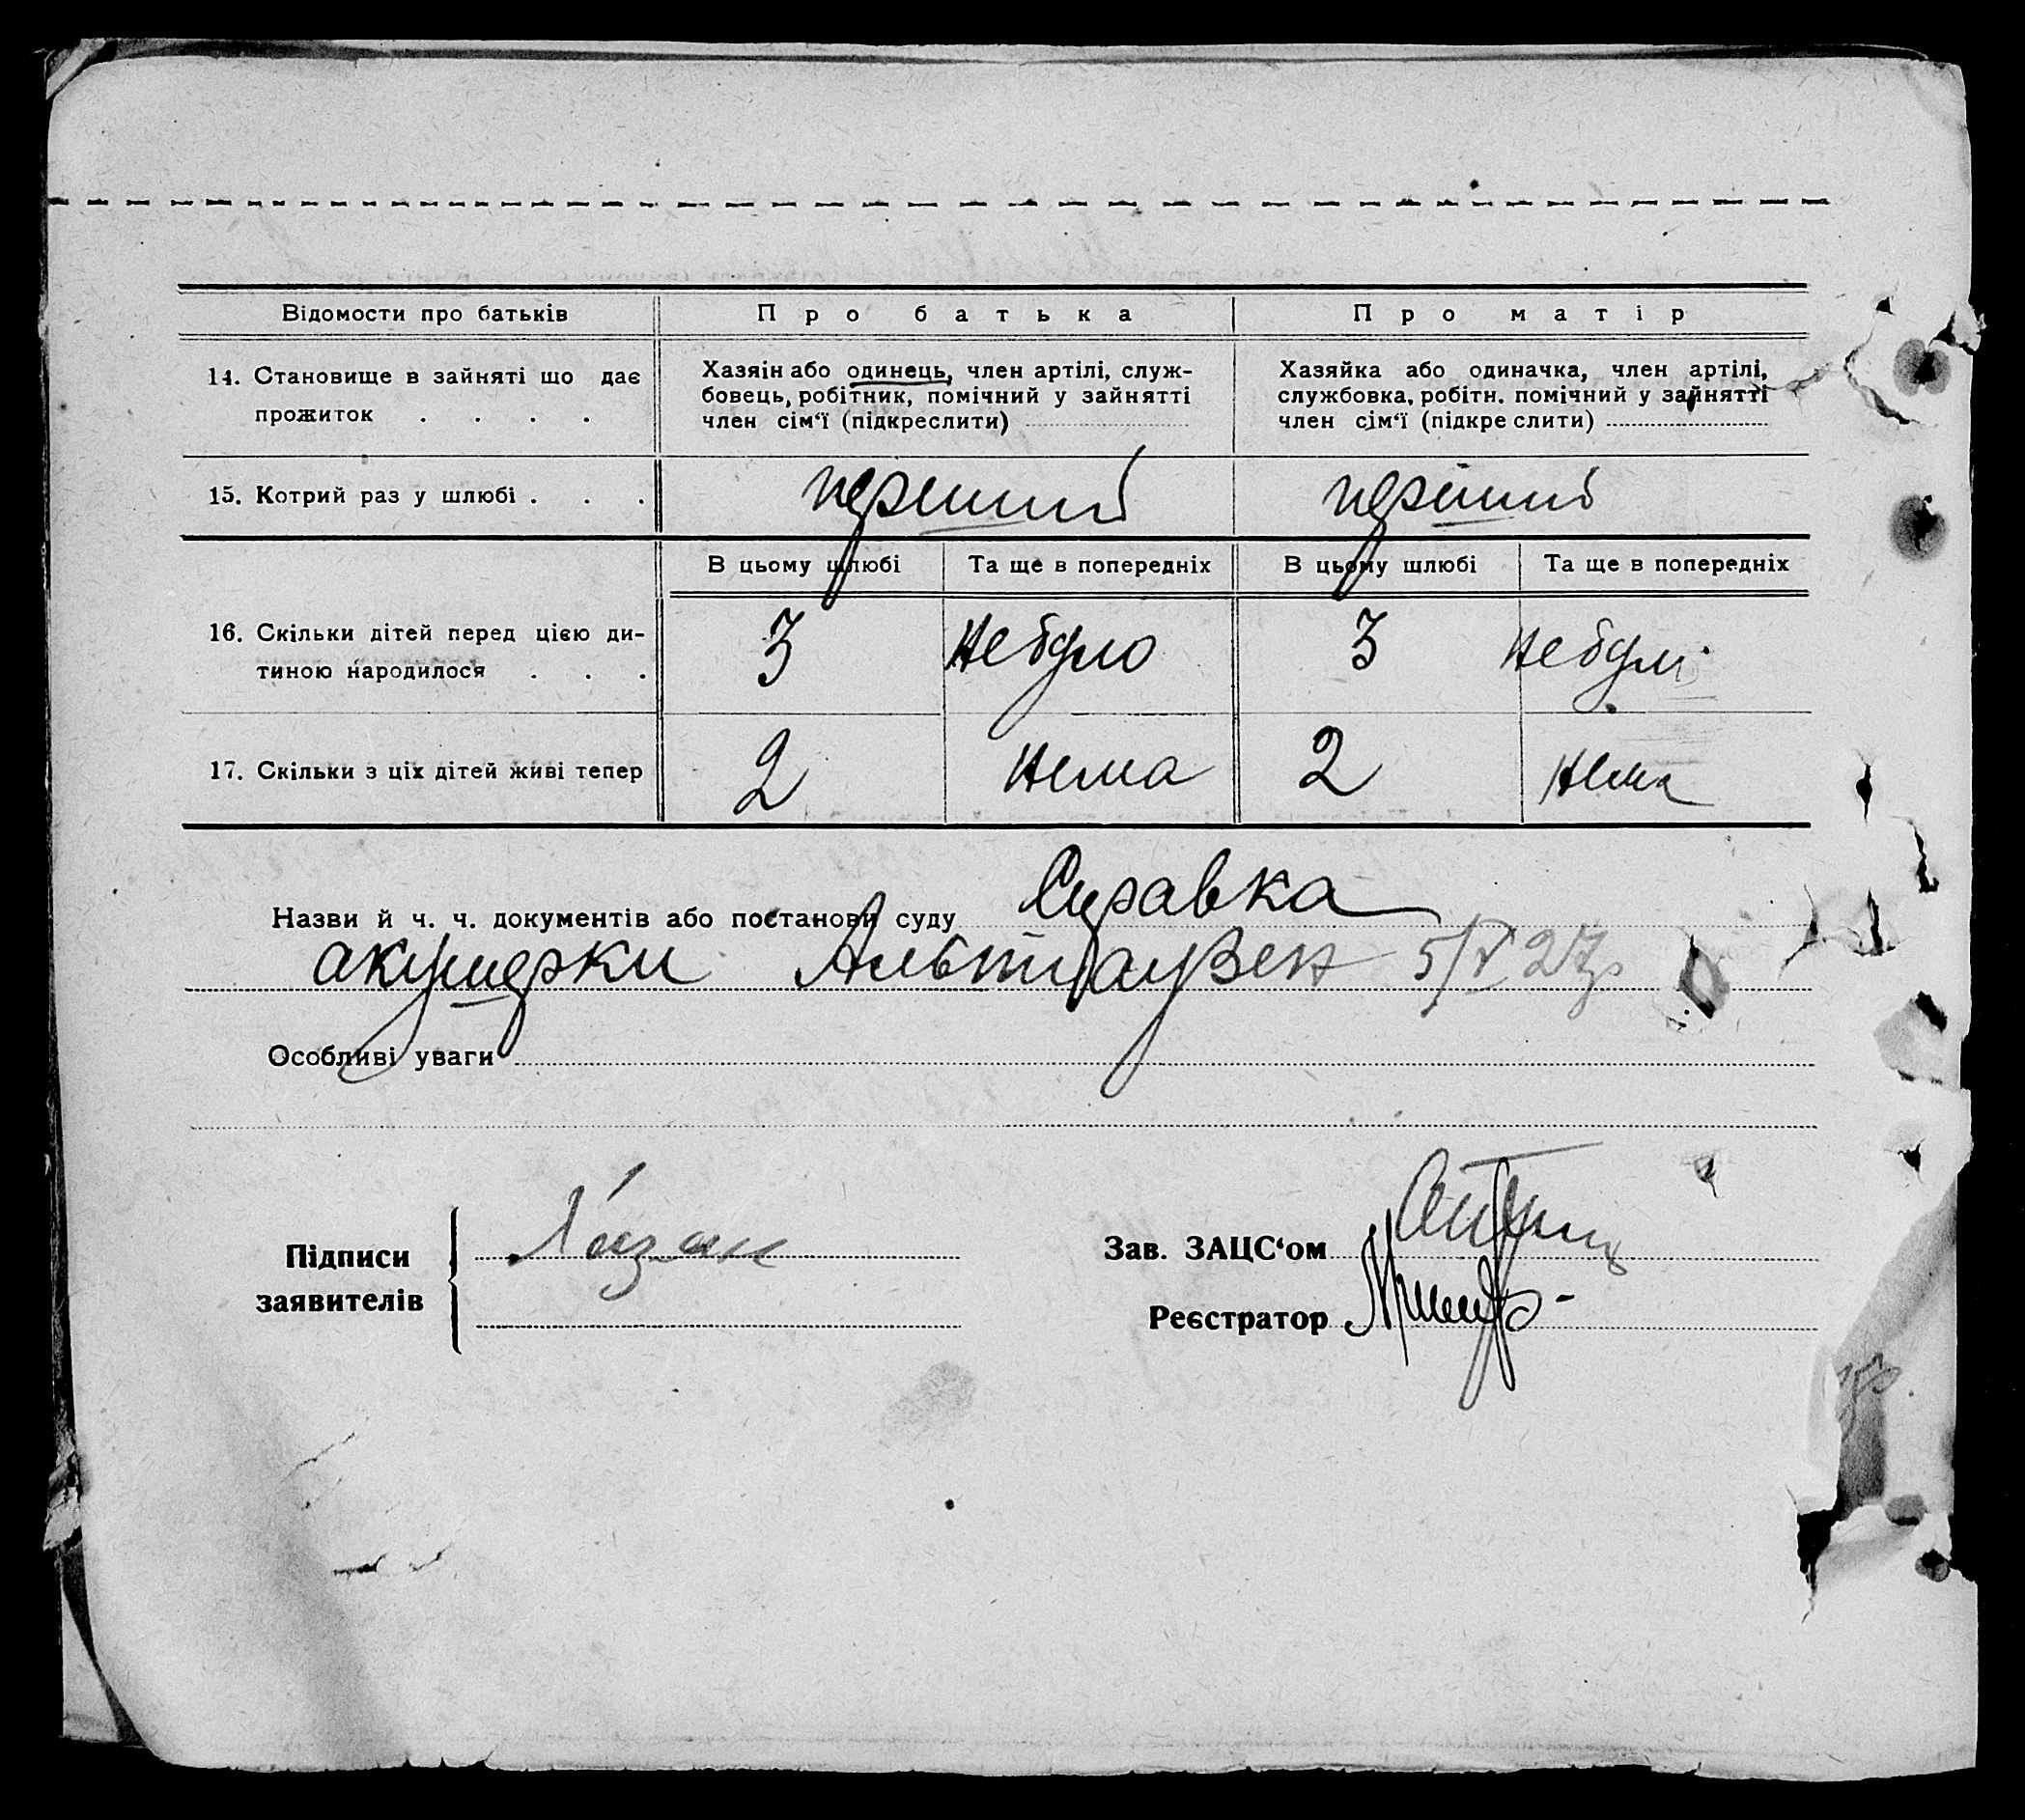 Відомости про батьків Про батька Про матір
14. Становище в зайняті що дає
прожиток . . . .
Хазяін або одинець, член артілі, служ-
бовець, робітник, помічний у зайнятті
член сім‘ї (підкреслити)
Хазяйка або одиначка, член артілі,
службовка, робітн. помічний у зайнятті
член сім‘ї (підкре слити)
15. Котрий раз у шлюбі . . . перший перший
В цьому шлюбі Та ще в попередніх В цьому шлюбі Та ще в попередніх
16. Скільки дітей перед цією ди-
тиною народилося . . .
3 небуло 3 небуло
17. Скільки з ціх дітей живі тепер 2 нема 2 нема
Назви й ч. ч. документів або постанови суду Справка
акушерки 5/V 27р
Особливі уваги
Підписи
заявителів
Зав. ЗАЦС‘ом
Реєстратор